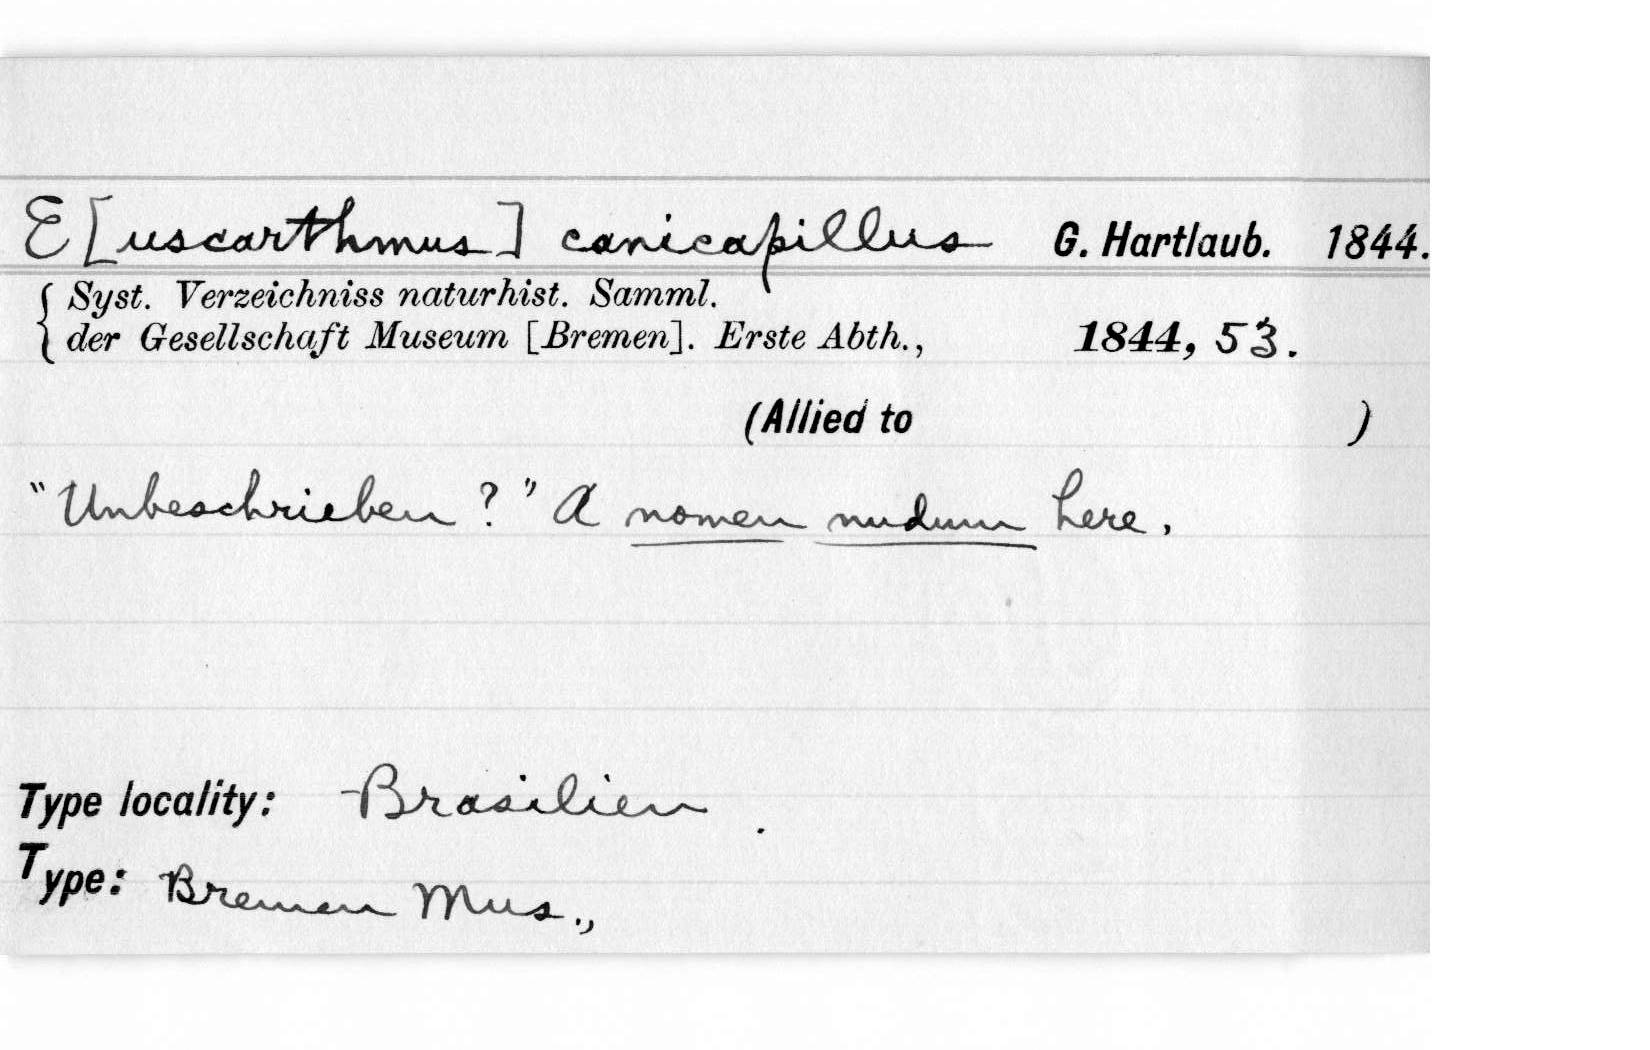 E[uscarthmus] canicapillus G. Hartlaub. 1844.
Syst. Verzeichniss naturhist. Samml.
der Gesellschaft Museum [Bremen]. Erste Abth., 1844, 53.
(Allied to )
"Unbeschrieben?" A nomen nudum here.
Type locality: Brasilien.
Type: Bremen Mus.,